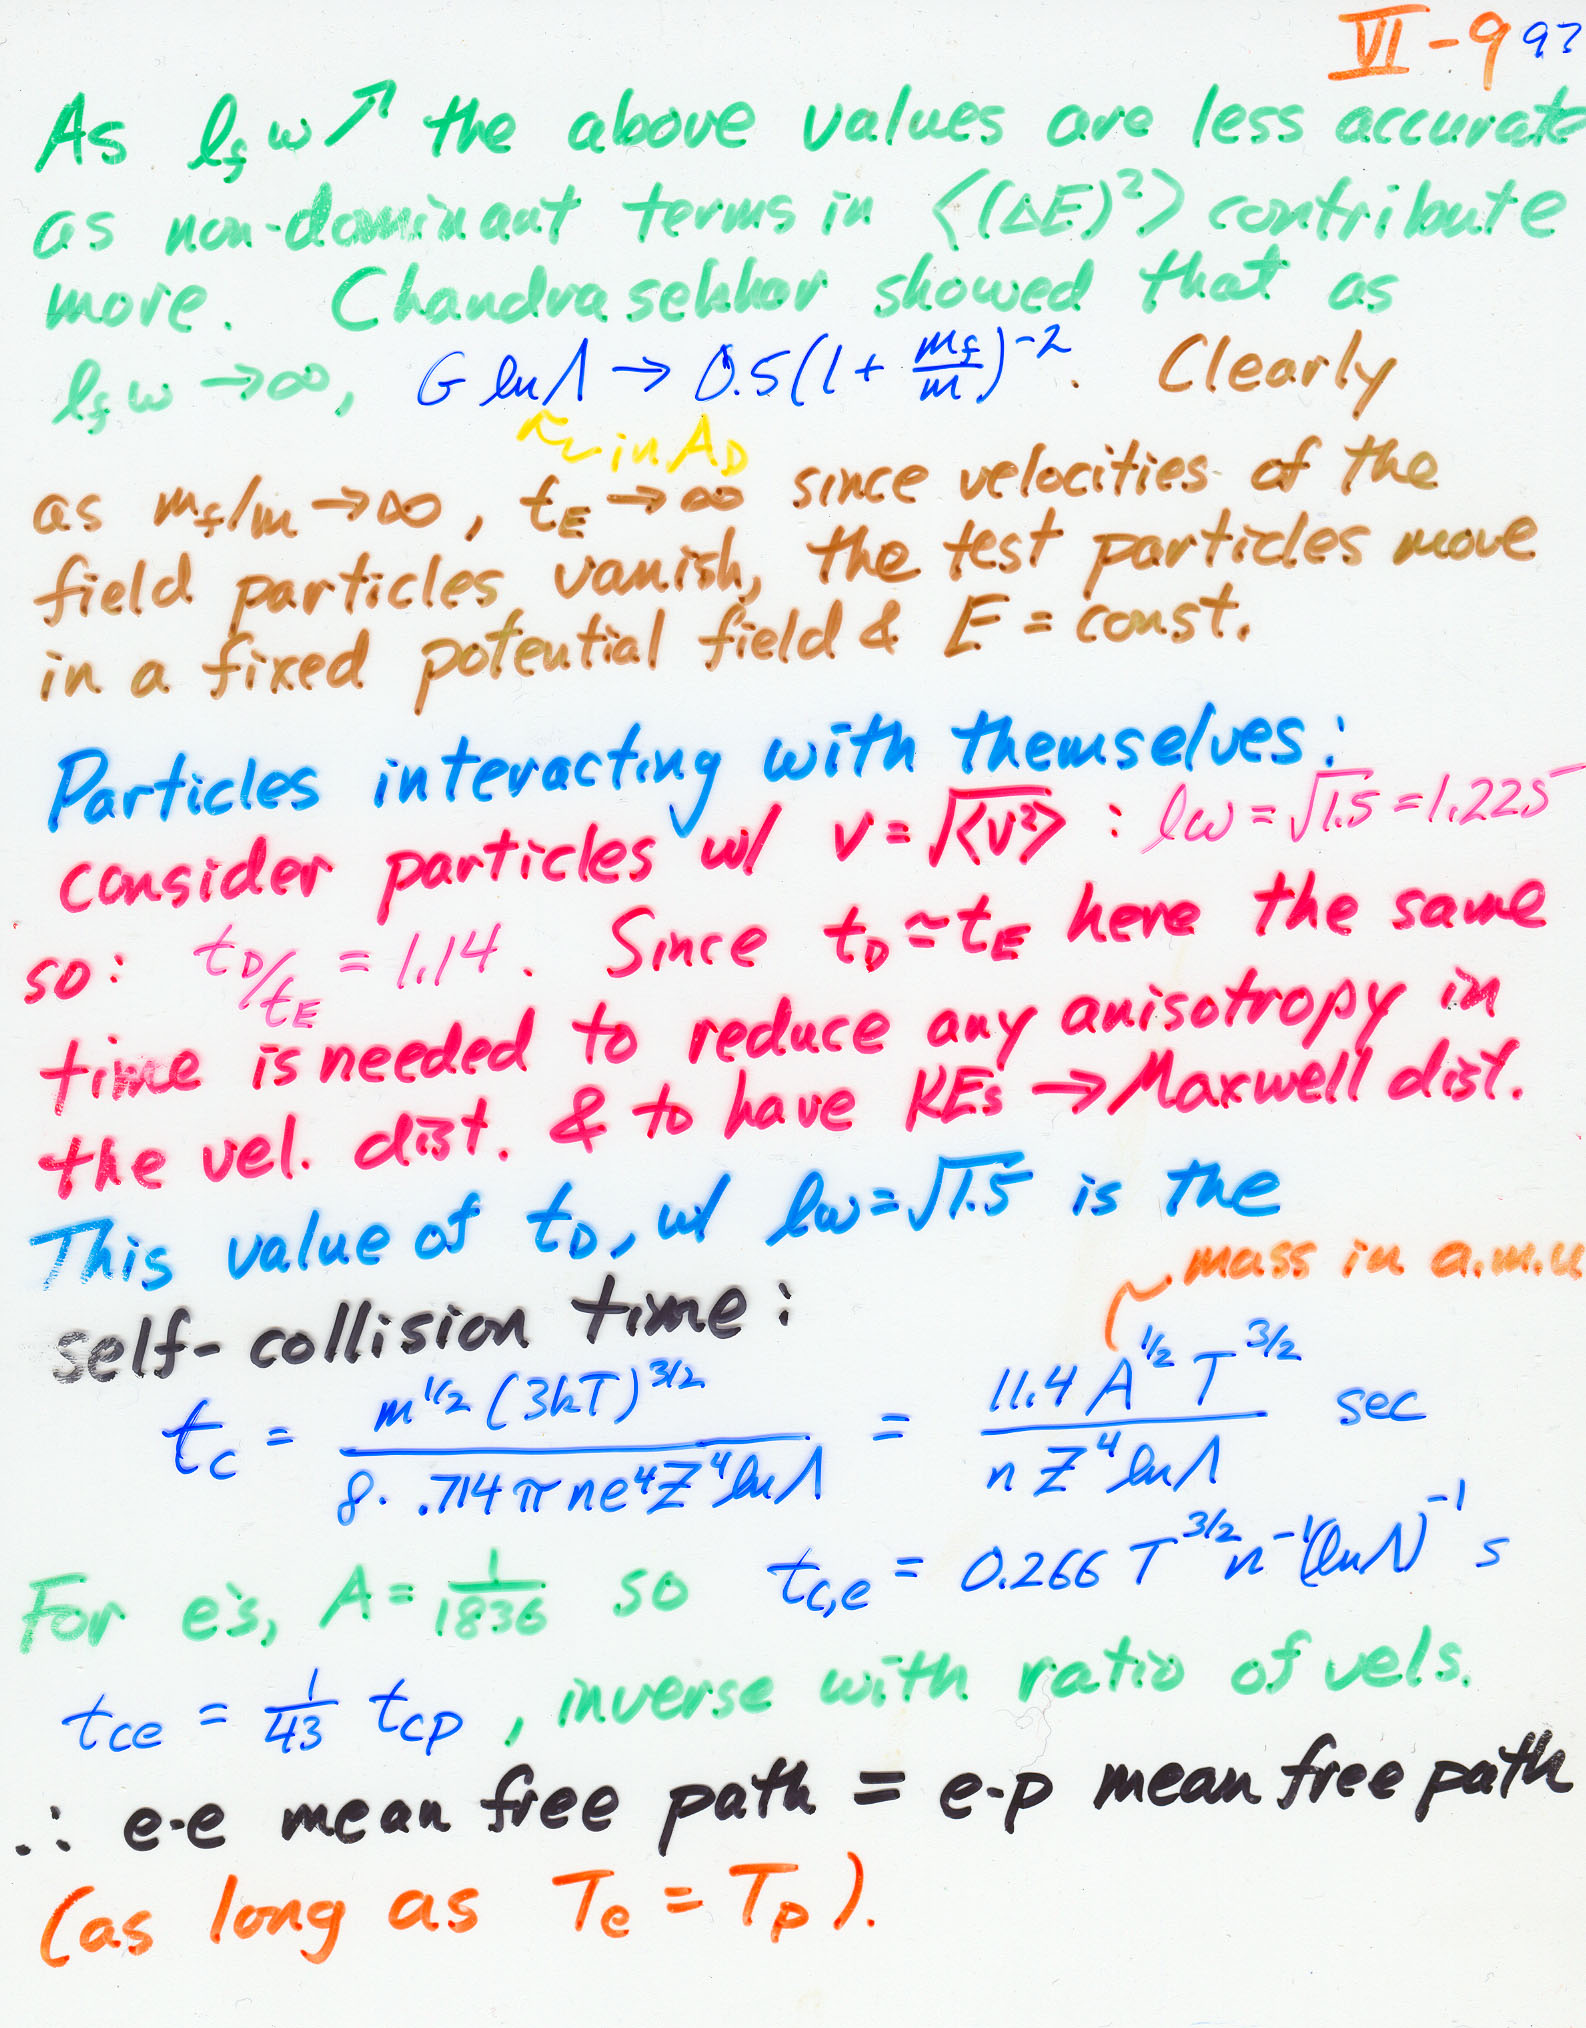 VI - 9 93
As l_f w ↗ the above values are less accurate
as non-dominant terms in ⟨(ΔE)²⟩ contribute
more. Chandrasekhar showed that as
l_f w → ∞, G lnΛ → 0.5(1 + m_f/m)^-2. Clearly
in A_D
as m_f/m → ∞, t_E → ∞ since velocities of the
field particles vanish, the test particles move
in a fixed potential field & E = const.
Particles interacting with themselves:
consider particles w/ v = √⟨v²⟩ : lw = √1.5 = 1.225
so: t_D/t_E = 1.14. Since t_D ≈ t_E here the same
time is needed to reduce any anisotropy in
the vel. dist. & to have KEs → Maxwell dist.
This value of t_D, w/ lw = √1.5 is the
mass in a.m.u
self-collision time:
t_c = m^1/2 (3kT)^3/2 / 8 · .714 π n e⁴ Z⁴ lnΛ = 11.4 A^1/2 T^3/2 / n Z⁴ lnΛ sec
For e's, A = 1/1836 so t_c,e = 0.266 T^3/2 n^-1 (lnΛ)^-1 s
t_ce = 1/43 t_cp, inverse with ratio of vels.
∴ e-e mean free path = e-p mean free path
(as long as T_e = T_p).